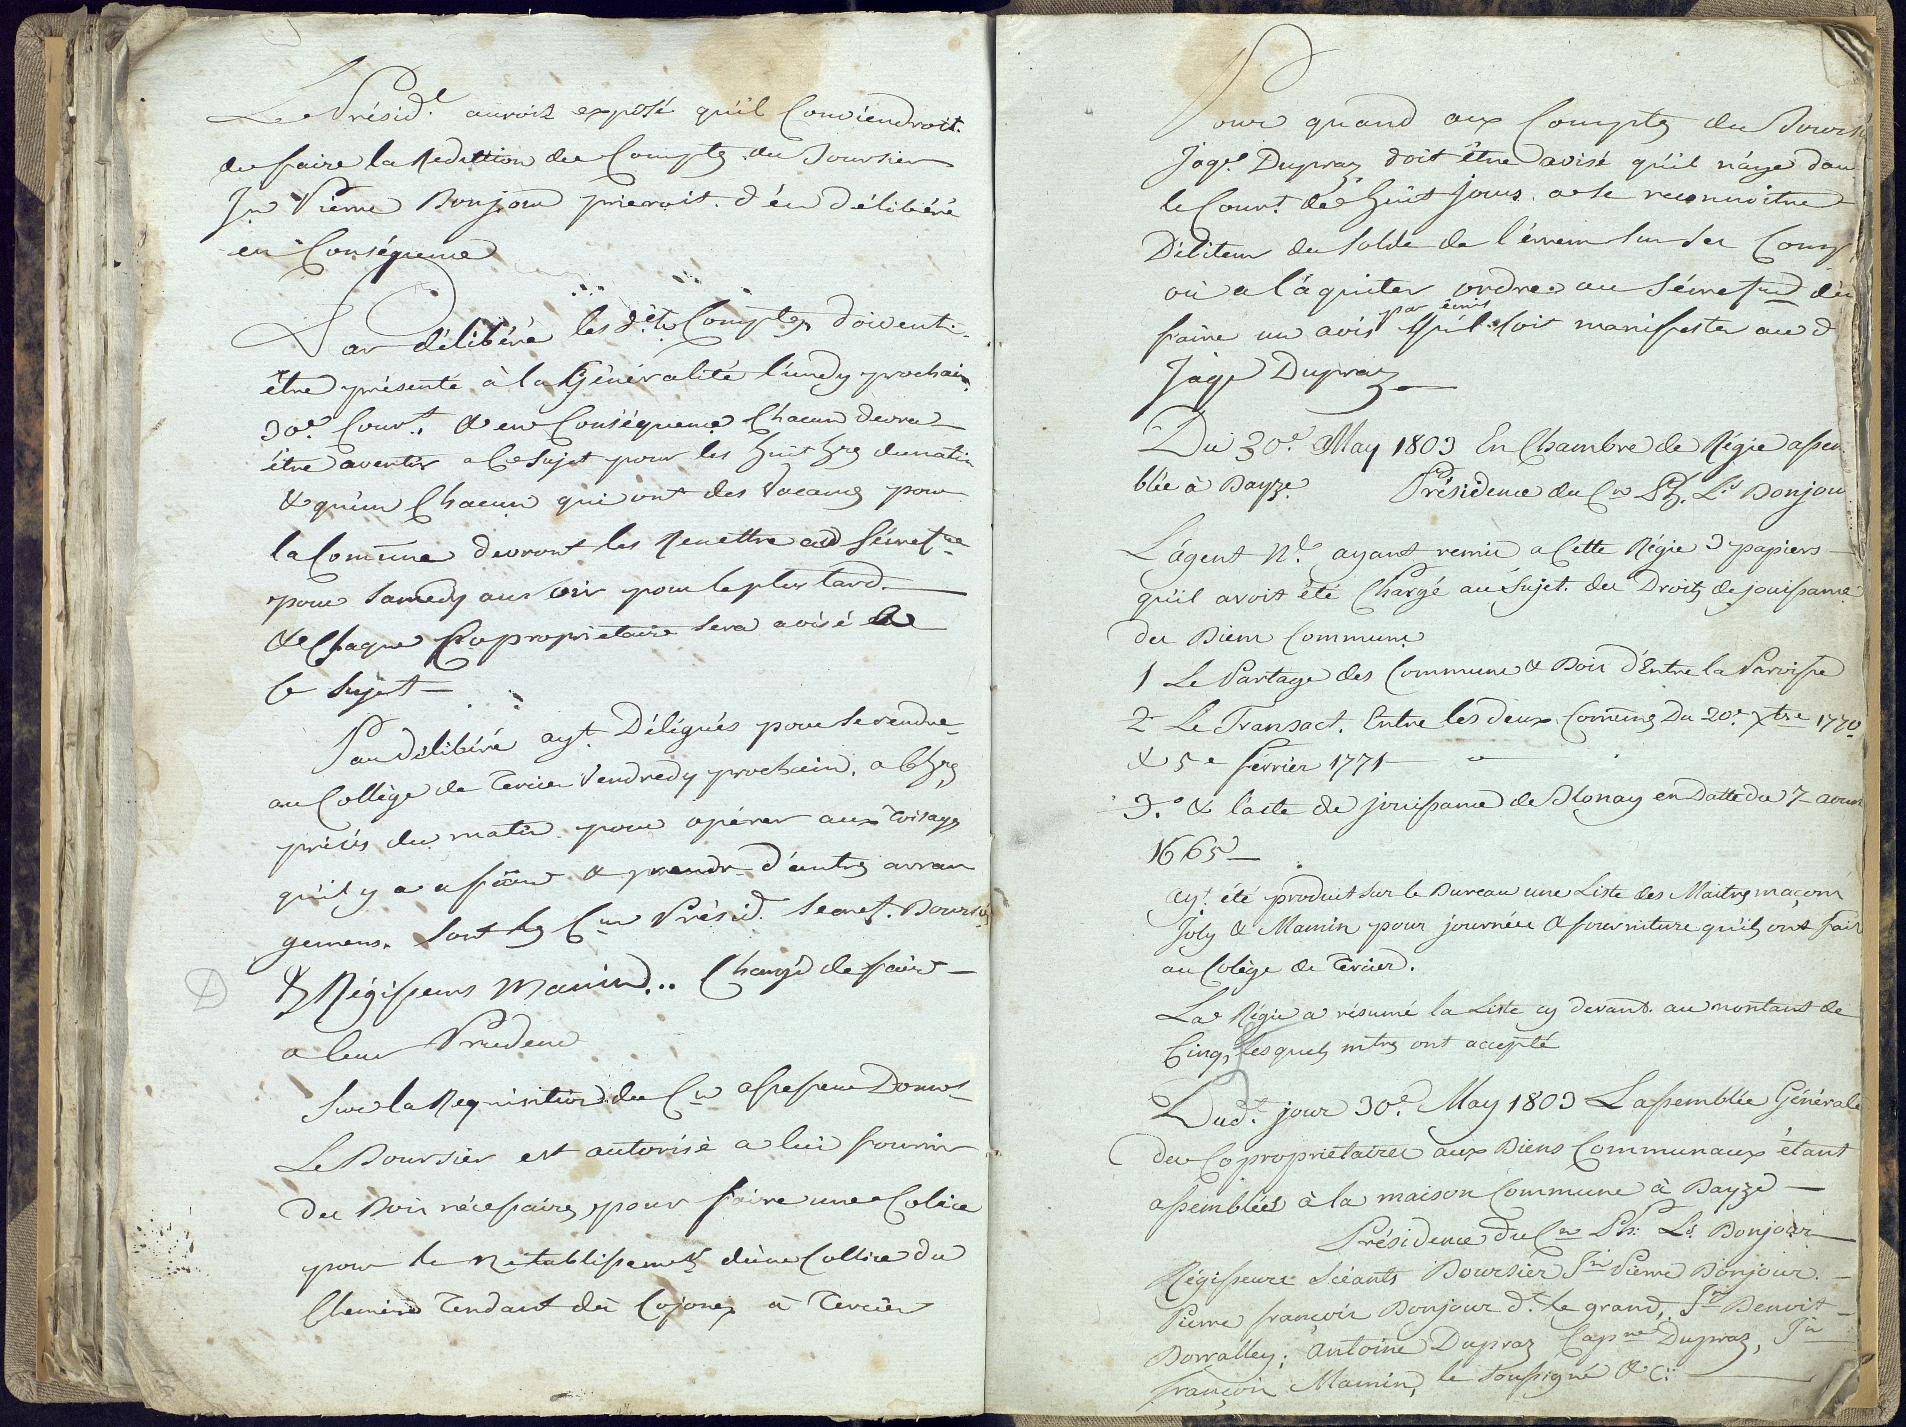 Le Présid.t auroit exposé qu'il Conviendroit.
de faire la Reddition des Comptes du Boursier
Jn Pierre Bonjour prieroit. d'én délibéré
en Conséquence
Par délibéré les dits Comptes doivent
être présenté à la Généralité lundy prochain
30e Court. & en Conséquence Chacun devra
être avertir a Ce sujet pour les huit hrs du matin
& qu'un Chacun qui ont des Vacans pour
la Comune devront les Remettre au Sécret.re
pour Samedy au soir pour le plus tard.
& Chaque Copropriétaire sera avisé
Ce Sujet
Par délibéré ayt. Délégués pour se rendre
au Collège de Tercier Vendredy prochain. a 6 hrs
précis du matin pour opérer aux Toisage
qu'il y a a faire & prendre d'autres arran
gemens. Sont les Cns Présid. Secret. Boursier
& Régisseurs Mamin... Chargé de faire
a leur Prudence
Sur la Requisition du Cn assesseur
Le Boursier est autorisé a lui fournir
des Bois nécessaires pour faire une Colice
pour le Rétablissement d'une Collice du
Chemin Tendant dès Cojonex à Tercier
Pour quand aux Comptes du Boursi
Jaqs. Dupraz doit être avisé qu'il n'aye dan
le Court. de huit Jours. a se reconnoitre
Débiteur du Solde de l'érreur sur ses Comp
ou a l'áquiter ordre au Sécret.re d'en
par écrit
faire un avis qu'il soit manifester au d
Jaqs Dupraz
Du 30e. May 1803 En Chambre de Régie assem
blée à Bayze. Présidence du Cn Ph. Ls Bonjour
L'agent Nl. ayant remis a Cette Régie 3 papiers
qu'il avoit été Chargé au Sujet. des Droits de jouissance
des Biens Communs
1 Le Partage des Commune & Bois d'Entre la Paroisse
2 Le Transact. Entre les deux Comunes Du 20e. Xbre 1770
& 5e février 1771
3.o & l'acte de jouissance de Blonay en Datte du 7 avril
1665
Ayt. été produit sur le Bureau une Liste des Maitres maçons
Joly & Mamin pour journées & fourniture qu'ils ont fait
au Colège de Tercier.
La Régie a résumé la Liste cy devant au montant de
Cinq, lesquels mtres ont accepté
Dud.t jour 30e. May 1803 Lassemblée Générale
des Copropriétaires aux Biens Communaux étant
assemblées à la maison Commune à Bayze
Présidence du Cn Ph: Ls. Bonjour
Régisseurs Séeants Boursier Jn Pierre Bonjour.
Pierre françois Bonjour dt. le grand, Jn Benoit
Borralley; Antoine Dupraz Capne Dupraz, Jn
françois Mamin, le Soussigné & C: